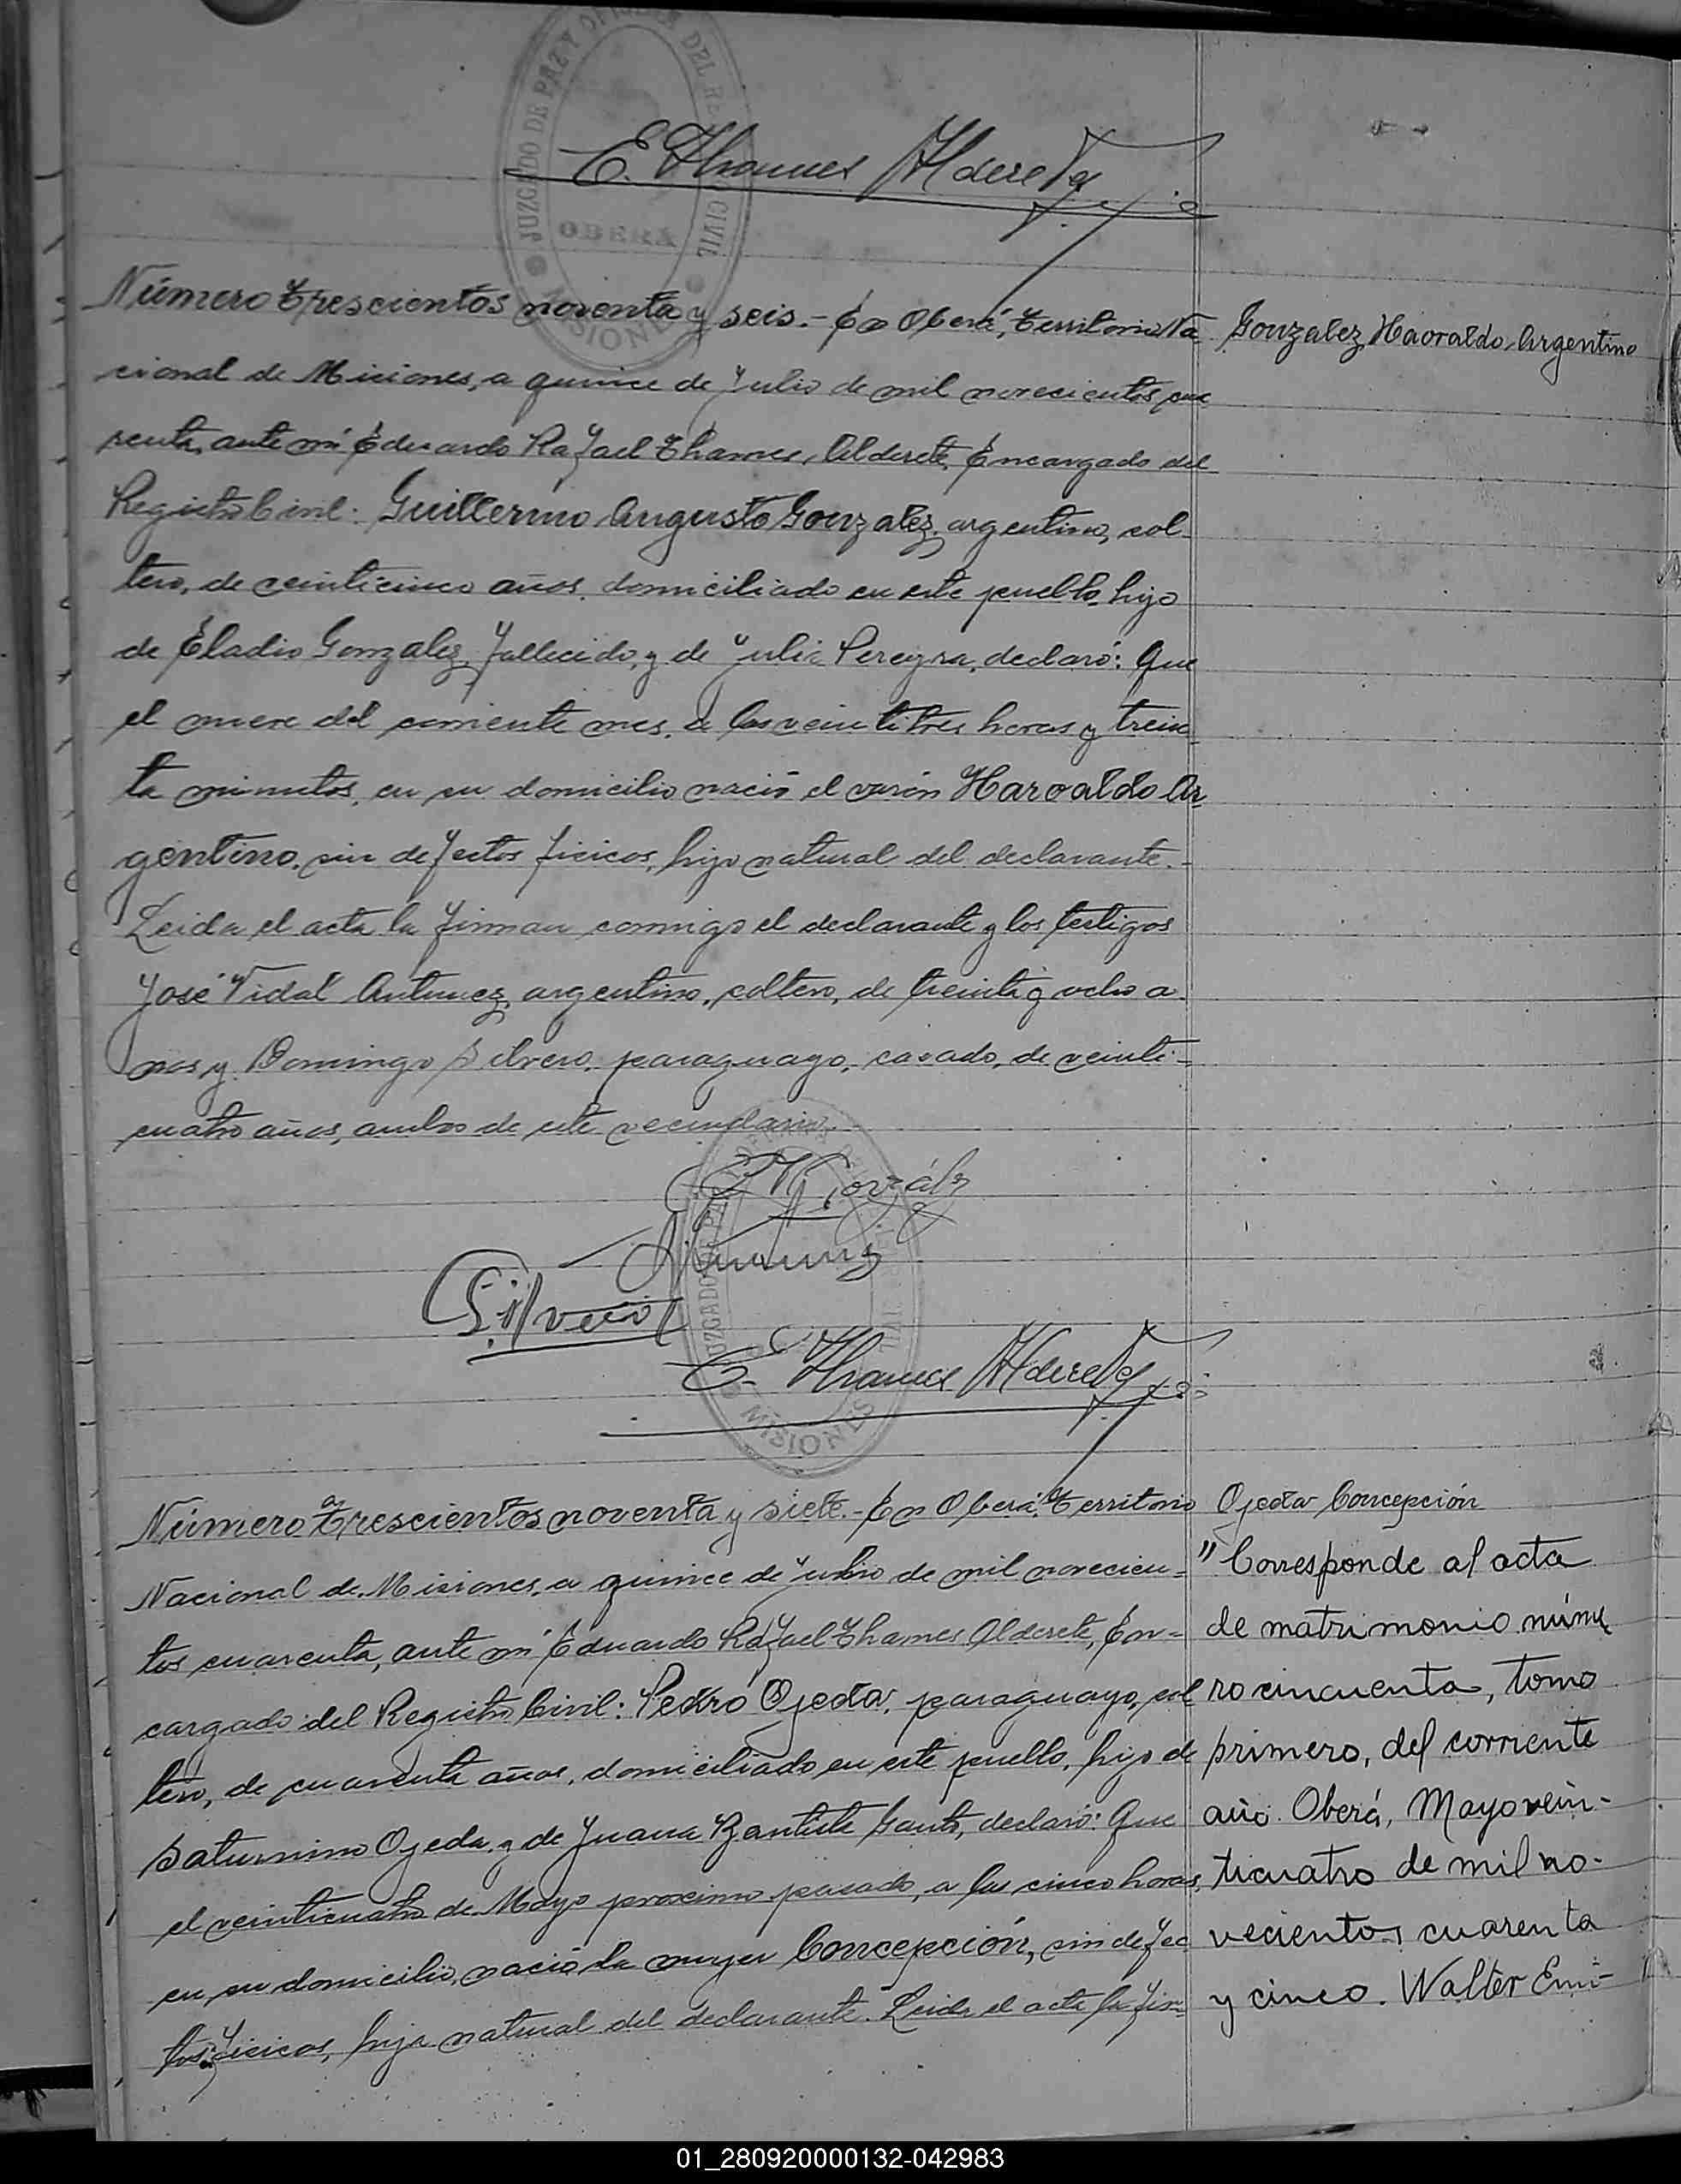 JUZGADO DE PAZ Y OFICINA DEL REGISTRO CIVIL
OBERÁ
MISIONES
E. Thames Alderete
Número trescientos noventa y seis.- En Oberá, Territorio Na
Gonzalez Haoraldo Argentino
cional de Misiones, a quince de Julio de mil novecientos cua
renta, ante mí Eduardo Rafael Thames Alderete, Encargado del
Registro Civil: Guillermo Augusto Gonzalez, argentino, sol-
tero, de veinticinco años, domiciliado en este pueblo, hijo
de Eladio Gonzalez, fallecido, y de Julia Pereyra, declaró: Que
el nueve del corriente mes, a las veintitres horas y trein-
ta minutos, en su domicilio nació el varón Haroaldo Ar
gentino, sin defectos fisicos, hijo natural del declarante.-
Leida el acta la firman conmigo el declarante y los testigos
José Vidal Antunez, argentino, soltero, de treinta y ocho a-
nos y Domingo Silvero, paraguayo, casado, de veinti-
cuatro años, ambos de este vecindario.-
Gonzály
Antunez
Silvero
E. Thames Alderete
MISIONES
Número trescientos noventa y siete.- En Oberá, Territorio
Nacional de Misiones, a quince de Julio de mil novecien-
tos cuarenta, ante mí Eduardo Rafael Thames Alderete, En-
cargado del Registro Civil: Pedro Ojeda, paraguayo, sol
tero, de cuarenta años, domiciliado en este pueblo, hijo de
Saturnino Ojeda y de Juana Bautista declaró: Que
el veinticuatro de Mayo proximo pasado, a las cinco horas,
en su domicilio, nació la mujer Concepción, sin defec
tos fisicos, hija natural del declarante. Leida el acta la fir-
Ojeda Concepción
"Corresponde al acta
de matrimonio núme
ro cincuenta, tomo
primero, del corriente
año. Oberá, Mayo vein-
ticuatro de mil no-
vecientos cuarenta
y cinco. Walter Emi-
01_280920000132-042983